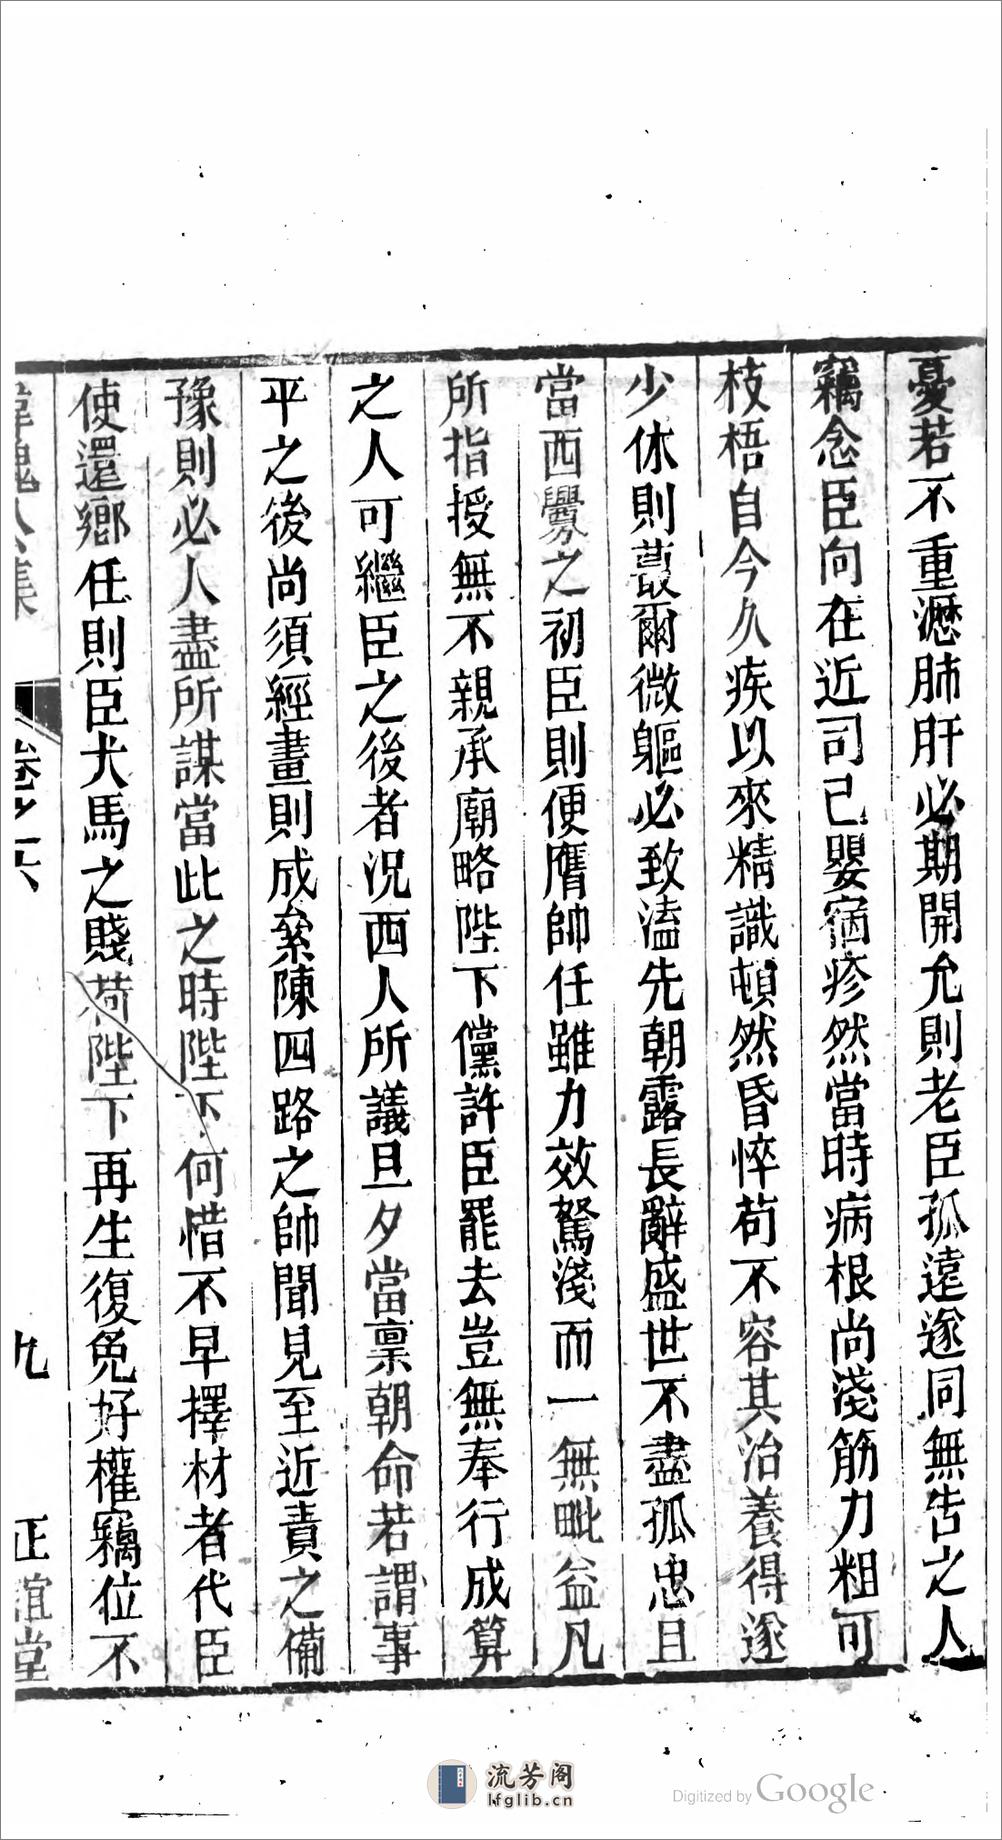 憂若不重瀝肺肝必期開允則老臣孤遠遂同無告之人
竊念臣向在近司已嬰宿疹然當時病根尚淺筋力粗可
枝梧自今久疾以來精識頓然昏悴苟不容其治養得遂
少休則蕞爾微軀必致溘先朝露長辭盛世不盡孤忠且
當西釁之初臣則便膺帥任雖力效駑淺而一無毗益凡
所指授無不親承廟略陛下儻許臣罷去豈無奉行成算
之人可繼臣之後者況西人所議旦夕當稟朝命若謂事
平之後尚須經畫則成象陳四路之帥聞見至近責之備
豫則必人盡所謀當此之時陛下何惜不早擇材者代臣
使還鄉任則臣犬馬之賤荷陛下再生復免好權竊位不
韓魏公集
卷之十六
九
正誼堂
流芳阁
lfglib.cn
Digitized by Google